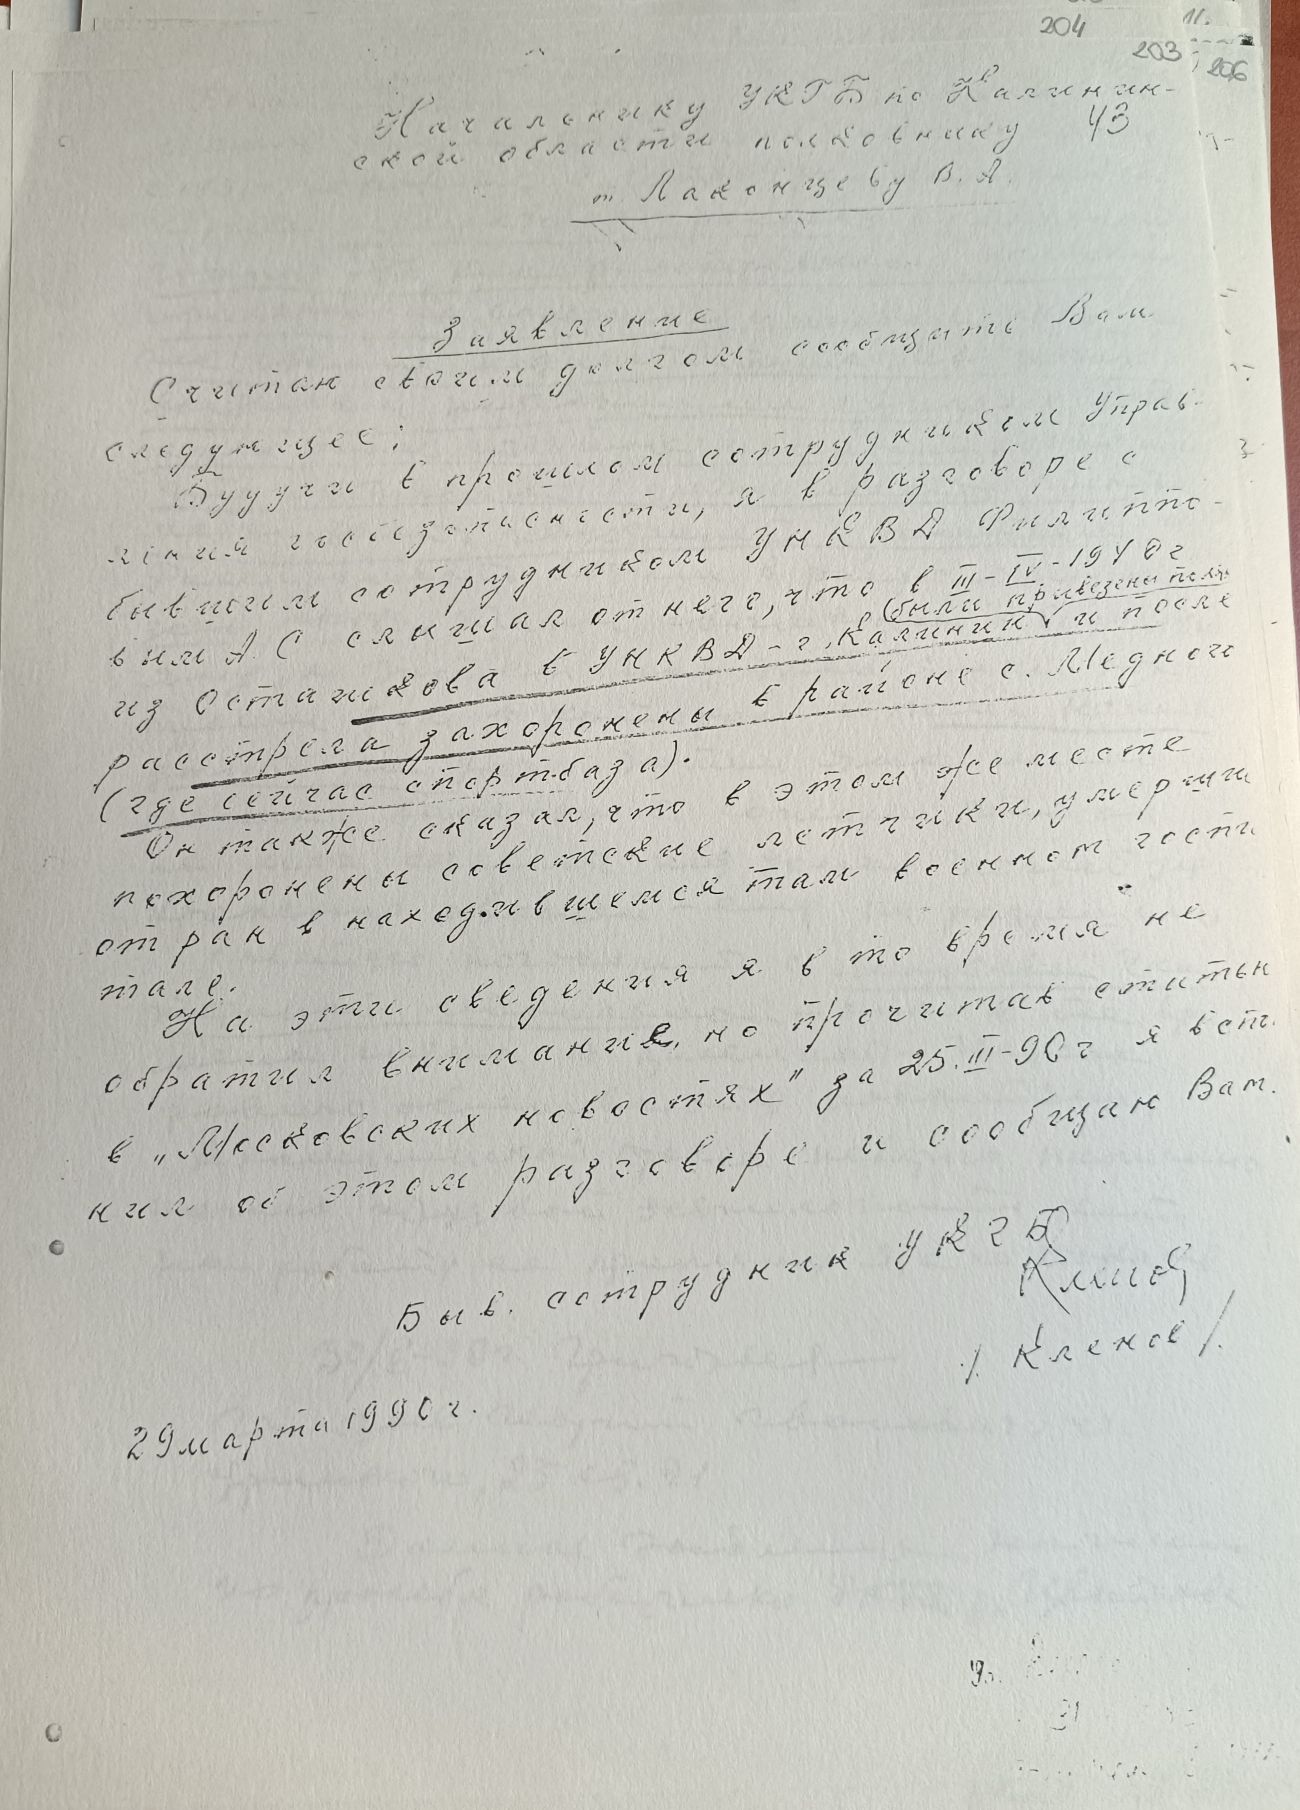 204
203
206
Начальнику УКГБ по Калинин-
ской области полковнику
43
т. Лаконцеву В.А.
Заявление
Считаю своим долгом сообщить Вам
следующее:
Будучи в прошлом сотрудником Управ-
ления госбезопасности, я в разговоре с
бывшим сотрудником УНКВД Филиппо-
вым А.С слышал от него, что в III-IV-1940г
(были привезены поля
из Осташкова в УНКВД-г. Калинин и после
расстрела захоронены в районе с. Медного
(где сейчас спортбаза).
Он также сказал, что в этом же месте
похоронены советские летчики, умерши
от ран в находившемся там военном госпи
тале.
На эти сведения я в то время не
обратил внимание, но прочитав статью
в „Московских новостях" за 25.III-90г я всп.
нил об этом разговоре и сообщаю Вам.
Быв. сотрудник УКГБ
Кленов
/Кленов/.
29 марта 1990г.